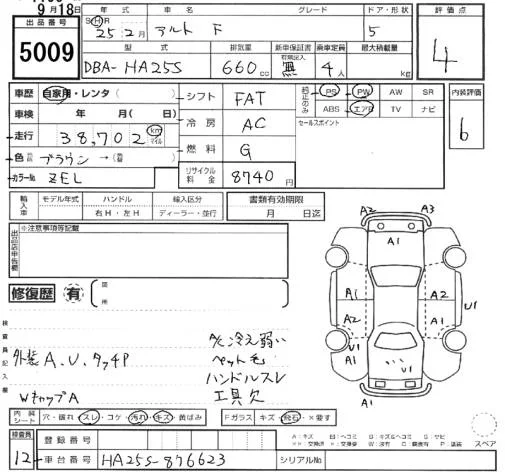 9月18日
出品番号
5009
年式 車名 グレード ドア・形状 評価点
S・H・R
25年2月 アルト F 5
4
型式 排気量 新車保証書 有無記入 乗車定員 最大積載量
DBA-HA25S 660cc 無 4人 kg
車歴 自家用・レンタ( )
車検 年 月( 日)
走行 38,702 km マイル
色 ブラウン →
カラーNo. ZEL
シフト FAT
冷房 AC
燃料 G
リサイクル料金 8740円
純正のみ PS PW AW SR
ABS エアB TV ナビ
セールスポイント
内装評価
6
輸入車 モデル年式 ハンドル 輸入区分
右H・左H ディーラー・並行
書類有効期限
月 日迄
出品店申告欄
※注意事項等記載
修復歴 有
箇所
検査員記入欄
外装 A.U.タッチP
WキャップA
A/C冷え弱い
ペット毛
ハンドルスレ
工具欠
A2 A3
A1
A1 A2
A2 A1
U1
U1
A1
A1
内装シート 穴・破れ・スレ・コゲ・汚れ・キズ・黄ばみ
Fガラス キズ・飛石・X要す
スペア
検査員
12
登録番号
車台番号 HA25S-876623 シリアルNo